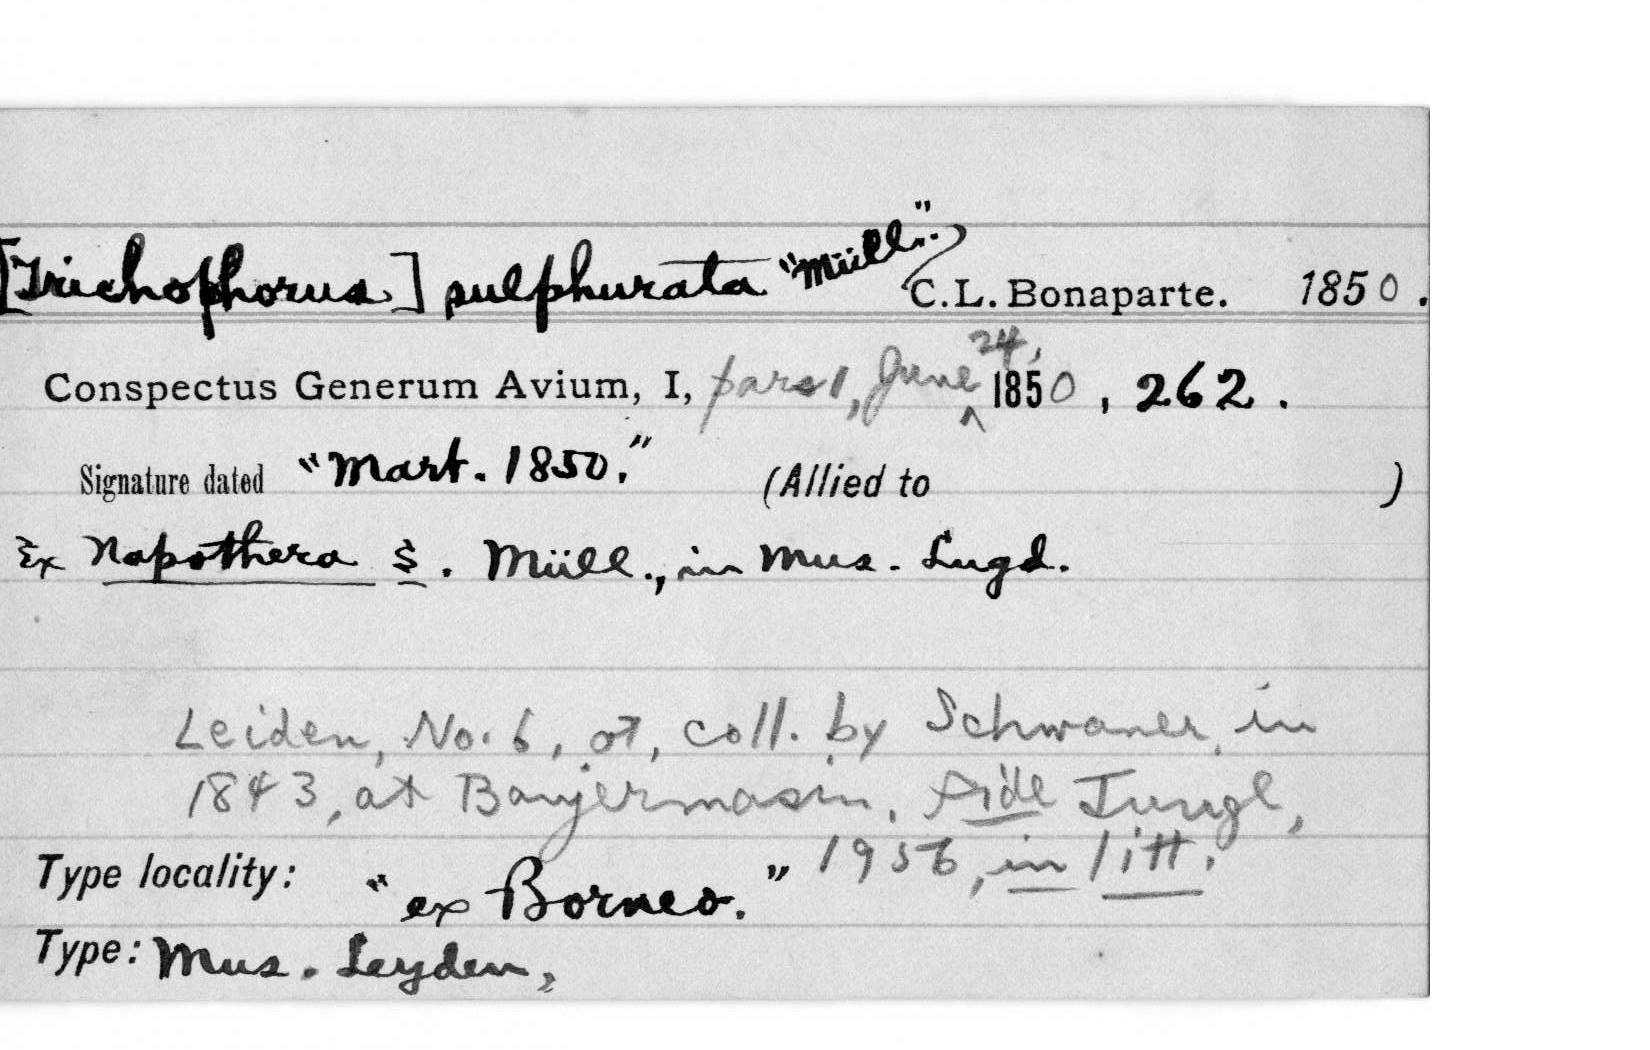 [Trichophorus] sulphurata "Müll." C.L. Bonaparte. 1850.
Conspectus Generum Avium, I, pars 1, June 24, 1850, 262.
Signature dated "Mart. 1850." (Allied to )
Ex Napothera S. Müll., in Mus. Lugd.
Leiden, No. 6, ♂, coll. by Schwaner, in
1843, at Banjermasin, fide Jungl,
1956, in litt.
Type locality: "ex Borneo."
Type: Mus. Leyden,